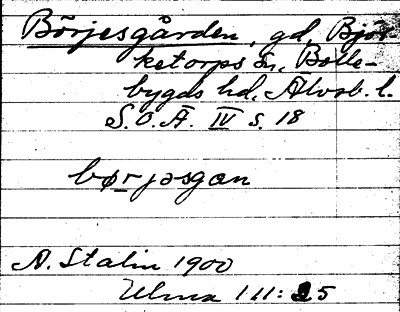 Börjesgården, gd, Björ-
ketorps sn, Bolle-
bygds hd. Älvsb. l.
S.O.Ä. IV s. 18
børjəsgan
A. Stalin 1900
Ulma 111: 25